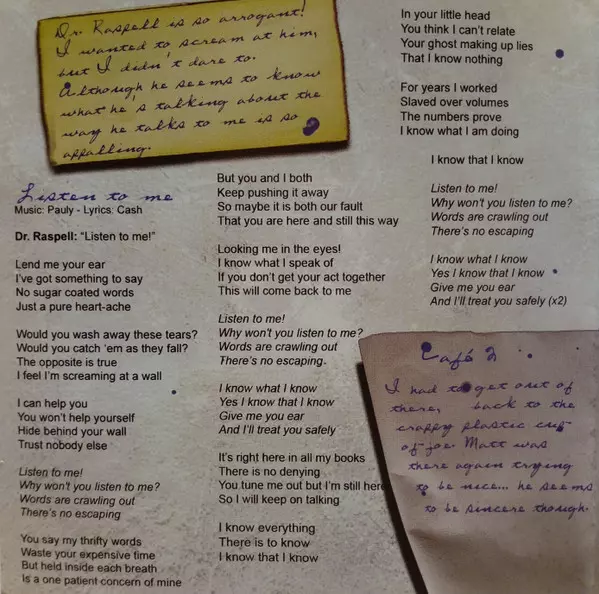 Dr. Raspell is so arrogant!
I wanted to scream at him,
but I didn't dare to.
Although he seems to know
what he's talking about the
way he talks to me is so
appalling.
Listen to me
Music: Pauly - Lyrics: Cash
Dr. Raspell: “Listen to me!”
Lend me your ear
I've got something to say
No sugar coated words
Just a pure heart-ache
Would you wash away these tears?
Would you catch 'em as they fall?
The opposite is true
I feel I'm screaming at a wall
I can help you
You won't help yourself
Hide behind your wall
Trust nobody else
Listen to me!
Why won't you listen to me?
Words are crawling out
There's no escaping
You say my thrifty words
Waste your expensive time
But held inside each breath
Is a one patient concern of mine
But you and I both
Keep pushing it away
So maybe it is both our fault
That you are here and still this way
Looking me in the eyes!
I know what I speak of
If you don't get your act together
This will come back to me
Listen to me!
Why won't you listen to me?
Words are crawling out
There's no escaping
I know what I know
Yes I know that I know
Give me you ear
And I'll treat you safely
It's right here in all my books
There is no denying
You tune me out but I'm still here
So I will keep on talking
I know everything
There is to know
I know that I know
In your little head
You think I can't relate
Your ghost making up lies
That I know nothing
For years I worked
Slaved over volumes
The numbers prove
I know what I am doing
I know that I know
Listen to me!
Why won't you listen to me?
Words are crawling out
There's no escaping
I know what I know
Yes I know that I know
Give me you ear
And I'll treat you safely (x2)
Café 2
I had to get out of
there, back to the
crappy plastic cup
of joe. Matt was
there again trying
to be nice... he seems
to be sincere though.